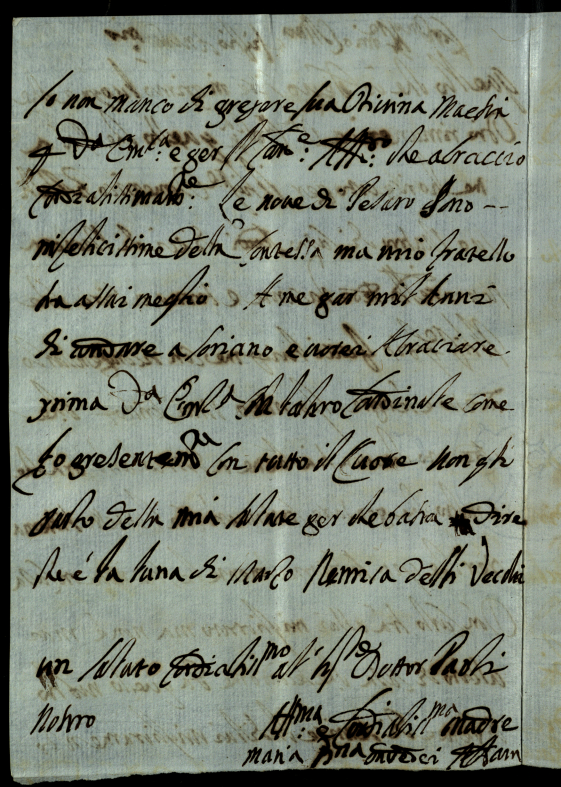 Io non manco di pregare sua Divina Maestà
p V.ra Em.za: e per il Con.e Att.mo: che abraccio
Cordialissimam.te: Le nove di Pesaro sono --
infelicissime della Contessa ma mio fratello
sta assai meglio A me par mill Anni
di andare a Soriano e vorei Abraciare
prima V.ra Em.za l'altro Cardinale come
fo presentem.te con tutto il Cuore non gli
parlo della mia salute per che basta dire
che é la luna di Marzo Nemica delli Vecchi
un saluto Cordialis.mo al Sig.e Dottor Paoli
nostro
Aff.ma e Cordialis.ma Madre
maria